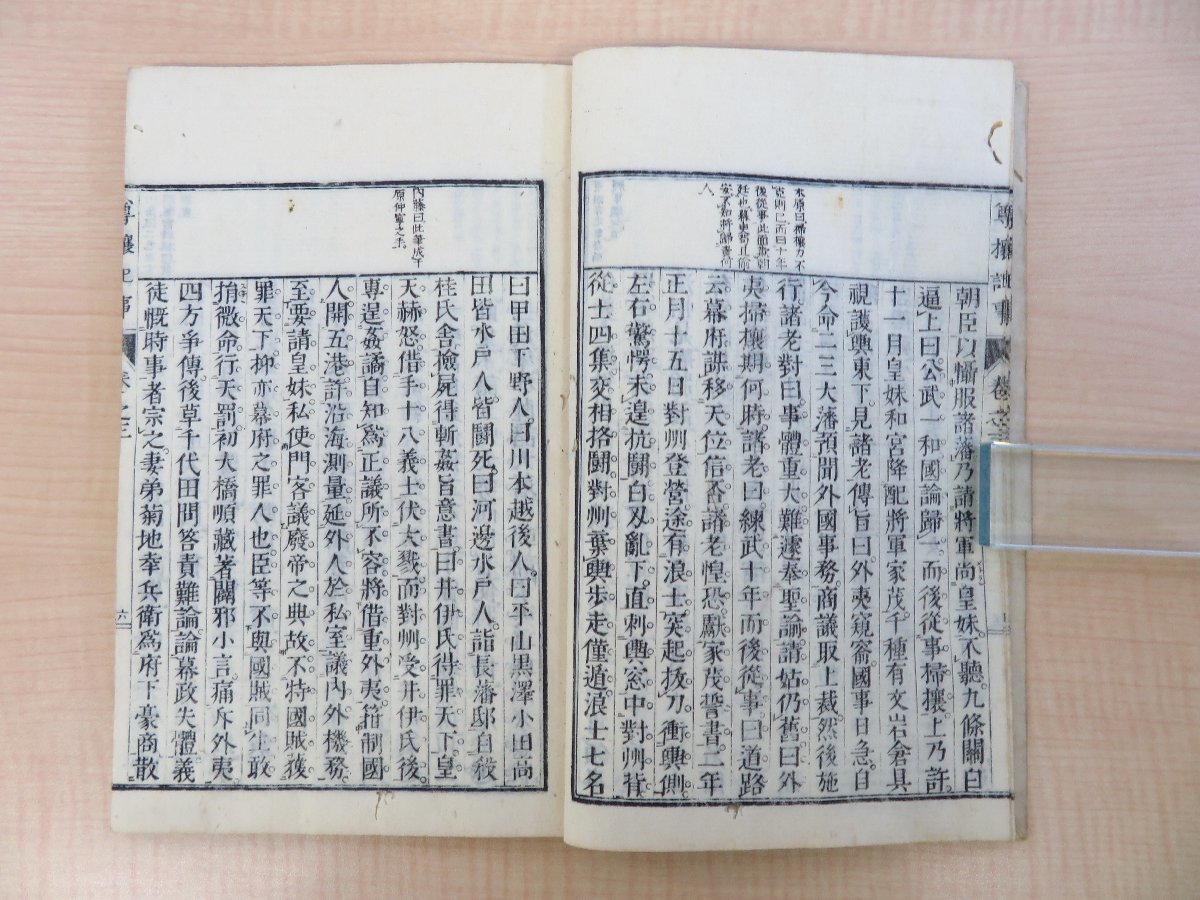 尊攘記事
卷之三
朝臣以懾服諸藩乃請將軍尚皇妹不聽九條關白
逼上曰公武一和國論歸一而後從事掃攘上乃許
十一月皇妹和宮降配將軍家茂千種有文岩倉具
視護輿東下見諸老傳旨曰外夷窺窬國事日急自
今命二三大藩預聞外國事務商議取上裁然後施
行諸老對曰事體重大難遽奉聖諭請姑仍舊曰外
夷掃攘期何時諸老曰練武十年而後從事曰道路
云幕府謀移天位信否諸老惶恐獻家茂誓書二年
正月十五日對州登營途有浪士突起拔刀衝輿側
左右驚愕未遑抗鬪白刃亂下直刺輿窓中對州背
從士四集交相挌鬪對州棄輿步走僅遁浪士七名
曰甲田下野人曰川本越後人曰平山黑澤小田高
田皆水戶人皆鬪死曰河邊水戶人詣長藩邸自殺
桂氏舍檢屍得斬姦旨意書曰井伊氏得罪天下皇
天赫怒借手十八義士伏大戮而對州受井伊氏後
專逞姦譎自知爲正議所不容將借重外夷箝制國
人開五港許沿海測量延外人於私室議內外機務
至要請皇妹私使門客議廢帝之典故不特國賊獲
罪天下抑亦幕府之罪人也臣等不與國賊同生敢
捐微命行天罰初大橋順藏著闢邪小言痛斥外夷
四方爭傳後草千代田問答責難論論幕政失體義
徒慨時事者宗之妻弟菊地奉兵衛爲府下豪商散
內藤曰此筆成于
原仲寧之手
尊攘記事
卷之三
六